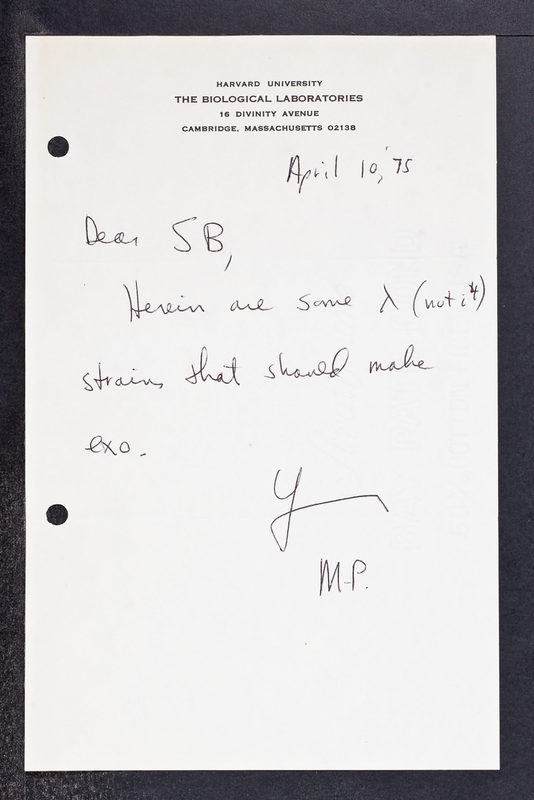 HARVARD UNIVERSITY
THE BIOLOGICAL LABORATORIES
16 DIVINITY AVENUE
CAMBRIDGE, MASSACHUSETTS 02138
April 10, '75
Dear SB,
Herein are some λ (not i⁴)
strains that should make
exo.
M.P.